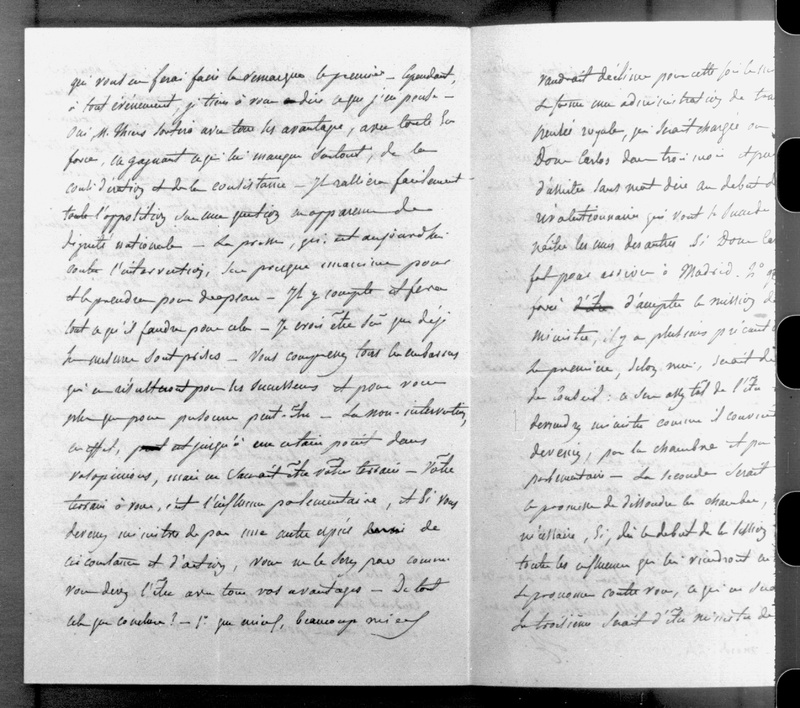 qui vous en ferai faire la remarque le premier – Cependant,
à tout événement, je tiens à vous dire ce que j'en pense –
Oui M. Thiers sortira avec tous les avantages, avec toute sa
force, en gagnant ce qui lui manque surtout, de la
considération et de la consistance – Il ralliera facilement
toute l'opposition sur une question en apparence de
dignité nationale – La presse, qui est aujourd'hui
contre l'intervention, sera presque unanime pour
et la prendra pour drapeau – Il y compte et fera
tout ce qu'il faudra pour cela – Je crois être sûr que déjà
les mesures sont prises – Vous comprenez tous les embarras
qui en résulteront pour les successeurs et pour vous
plus que pour personne peut-être – La non-intervention,
en effet, est jusqu'à un certain point dans
vos opinions, mais ne saurait être votre terrain – Votre
terrain à vous, c'est l'influence parlementaire, et si vous
devenez ministre de par une autre espèce de
circonstances et d'action, vous ne le serez pas comme
vous devez l'être avec tous vos avantages – De tout
cela que conclure ? – 1° que mieux, beaucoup mieux
vaudrait décliner pour cette fois la
se forme une administration de
pensée royale, qui serait chargée
Dom Carlos dans trois mois et
d'assister sans mot dire au début
révolutionnaire qui vont le
les uns des autres si Dom
fait pour arriver à Madrid. 2°
forcé d'accepter la mission de
ministre, il y a plusieurs précautions
La première, selon moi, serait de
du Conseil : ce serait assez tôt de l'être
deviendrez ministre comme il convient
devenir, par la chambre et par
parlementaire – La seconde serait
la promesse de dissoudre la chambre,
nécessaire, si, dès le début de la session
toutes les influences qui lui viendront
se prononce contre vous, ce qui ne serait
La troisième serait d'être ministre de